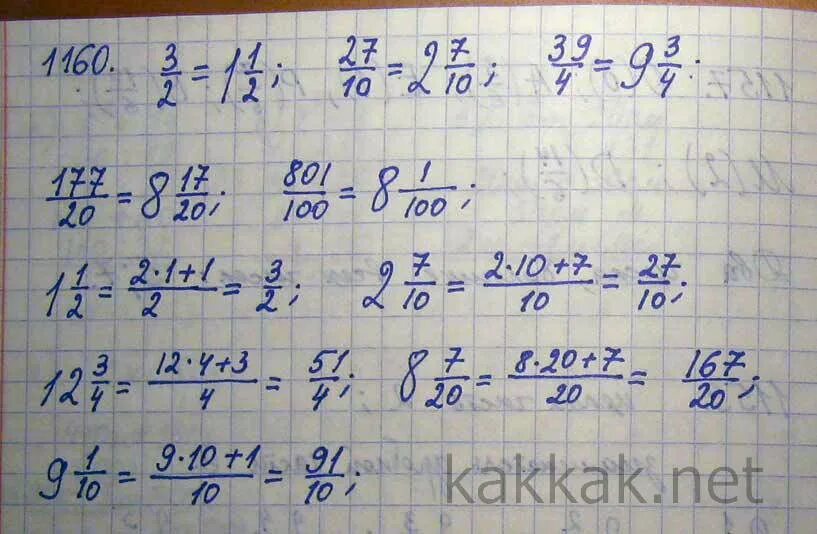 1160. 3/2 = 1 1/2; 27/10 = 2 7/10; 39/4 = 9 3/4;
177/20 = 8 17/20; 801/100 = 8 1/100;
1 1/2 = (2·1+1)/2 = 3/2; 2 7/10 = (2·10+7)/10 = 27/10;
12 3/4 = (12·4+3)/4 = 51/4; 8 7/20 = (8·20+7)/20 = 167/20;
9 1/10 = (9·10+1)/10 = 91/10;
kakkak.net